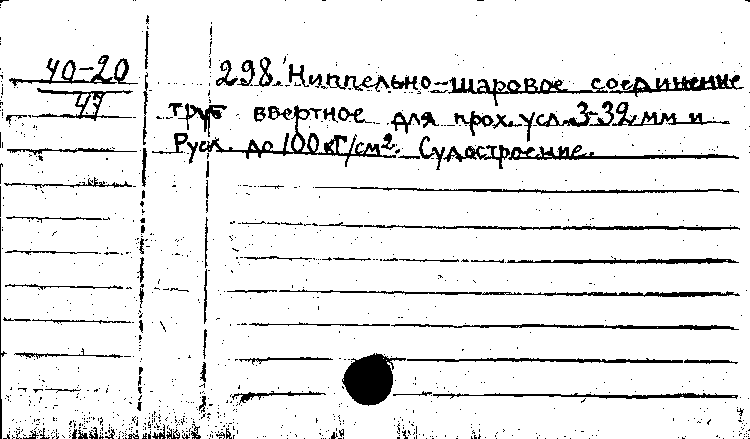 40-20
47
298. Ниппельно-шаровое соединение
труб ввертное для прох. усл. 3-32 мм и
Русл. до 100 кГ/см². Судостроение.